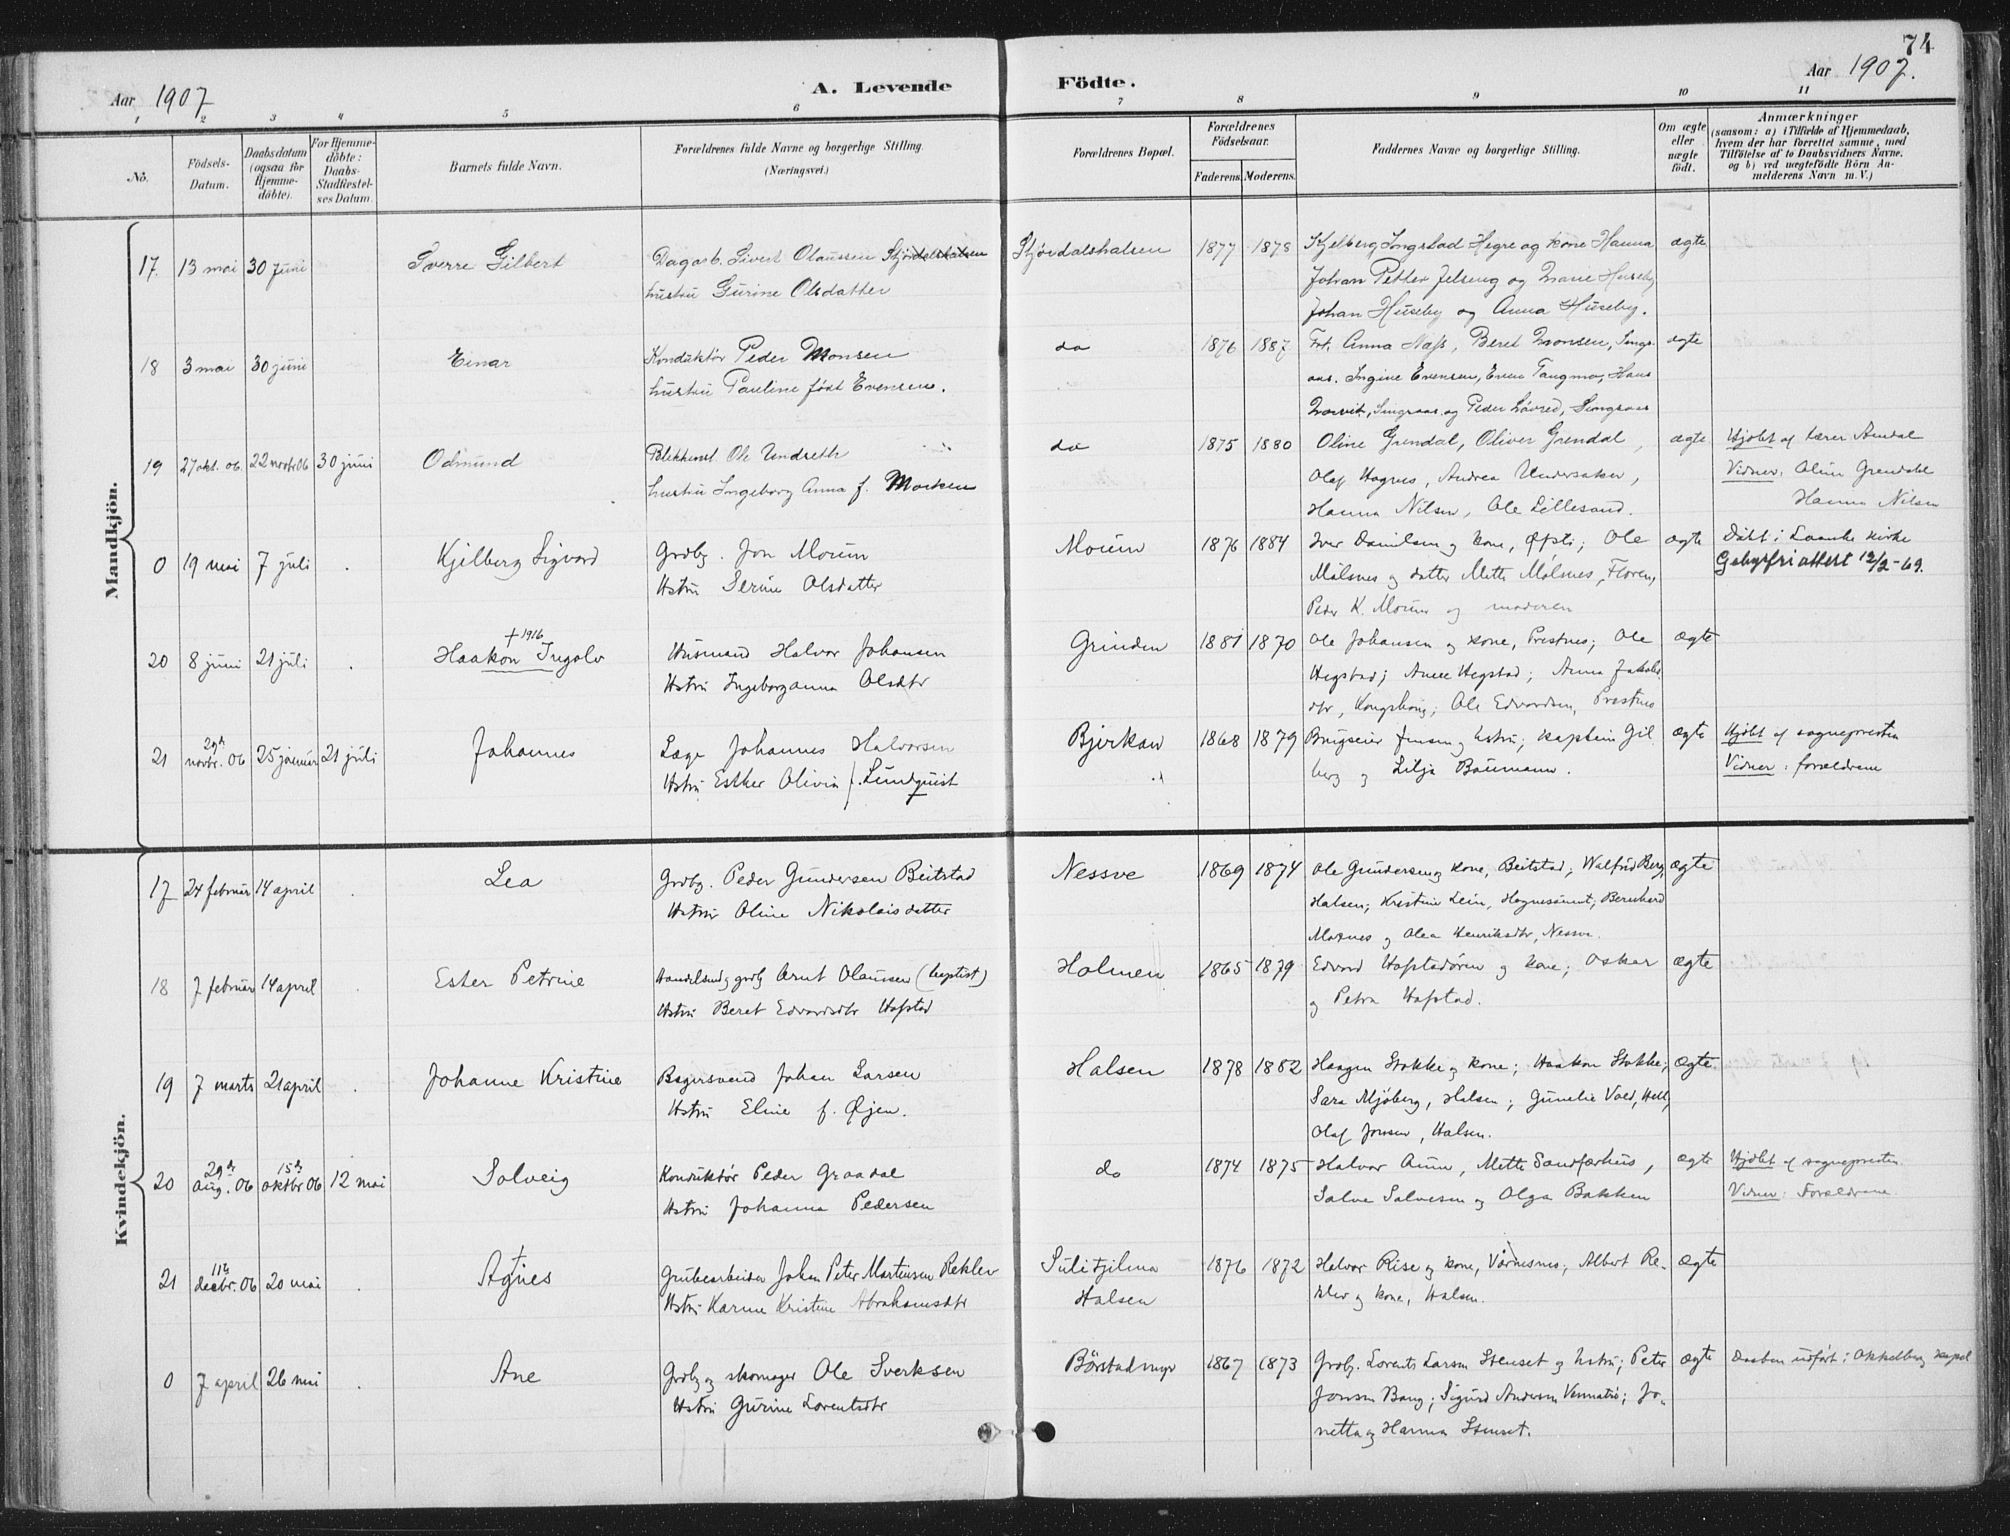 74
Aar 1907 A. Levende Födte. Aar 1907.
1 2 3 4 5 6 7 8 9 10 11
No.
Födsels-Datum.
Daabsdatum (ogsaa for Hjemme-döbte).
For Hjemme-döbte: Daabs-Stadfæstel-ses Datum.
Barnets fulde Navn.
Forældrenes fulde Navne og borgerlige Stilling.
(Næringsvei.)
Forældrenes Bopæl.
Forældrenes Födselsaar.
Faderens. Moderens.
Faddernes Navne og borgerlige Stilling.
Om ægte eller uægte födt.
Anmærkninger
(saasom: a) i Tilfælde af Hjemmedaab,
hvem der har forrettet samme, med
Tilföielse af to Daabsvidners Navne.
og b) ved uægtefödte Börn An-
melderens Navn m. V.)
Mandkjön.
17. 13 mai 30 juni Sverre Gilbert Dagarb. Sivert Olaussen Stjördalshalsen Stjördalshalsen 1877 1878 Kjelberg Ingstad Hegre og kone Hanna ægte
hustru Gurine Olsdatter Johan Petter Jelseng og Huseby
Johan Huseby og Anna Huseby.
18 3 mai 30 juni Einar Konduktör Peder Monsen do 1876 1887 Frk. Anna Næss, Beret Monsen, Sings- ægte
hustru Pauline födt Evensen. aas. Ingine Evensen, Even Tangmo, Hans
Singsaas og Peder Singsaas
19 27 okt. 06. 22 novbr 06 30 juni Odmund Blikkensl. Ole Undseth do 1875 1880 Oline Grendal, Oliver Grendal, ægte Hjdbt af lærer Arndal
hustru Ingeborg Anna f. Morken Olaf Hognes, Andrea Undersaker, Vidner: Oline Grendahl
Hanna Nilsen, Ole Lillesand. Hanna Nilsen
0 19 mai 7 juli Kjelberg Sigvard Grdbg. Jon Moum Moum 1876 1884 Iver Danielsen og kone, Öfsti; Ole ægte Döbt i Laanke kirke
Hstru Serine Olsdatter Mölsnes og datter Mette Mölsnes, Floren, Gebyrfri attest 12/2-69.
Peder K. Moum og moderen
20 8 juni 21 juli Haakon Ingolv + 1916 Husmand Halvor Johansen Grinden 1881 1870 Ole Johansen og kone, Prestmo; Ole ægte
Hstru Ingeborganna Olsdtr Hegstad; Anne Hegstad; Anna Jakobs-
dtr, Kongshaug; Ole Edvardsen, Prestmo
21 29de novbr. 06 25 januar 21 juli Johannes Læge Johannes Halvorsen Bjerkan 1868 1879 Brugseier Jensen og hstru; kaptein Gil- ægte Hjdbt af sognepresten
Hstru Esther Olivia f. Lundquist berg og Lilja Baumann. Vidner: forældrene
Kvindekjön.
17 24 februar 14 april Lea Grdbg. Peder Gundersen Beitstad Nessve 1869 1874 Ole Gundersen og kone, Beitstad; Walfrid Berg, ægte
Hstru Oline Nikolaisdatter Halsen; Kristine Lein, Hognesaunet; Bernhard
Moxnes og Olea Henriksdtr, Nessve.
18 7 februar 14 april Ester Petrine Handelsmd og grdbg Arnt Olaussen (baptist) Holmen 1865 1879 Edvard Hofstadören og kone; Oskar ægte
Hstru Beret Edvardsdtr Hofstad og Petra Hofstad.
19 7 marts 21 april Johanne Kristine Bagersvend Johan Larsen Halsen 1878 1882 Haagen Stokke og kone; Haakon Stokke; ægte
Hstru Eline f. Öyen. Sara Mjöberg, Halsen; Gunelie Vold, Hell,
Olaf Jonsen, Halsen.
20 29de aug. 06 15de oktbr 06 12 mai Solveig Konduktör Peder Graadal do 1874 1875 Halvor Aune, Mette Sandfærhus, ægte Hjdbt af sognepresten
Hstru Johanna Pedersen Salve Salvesen og Olga Bakken Vidner: Forældrene
21 11te decbr. 06 20 mai Agnes + Grubearbeider Johan Peter Martinsen Reklev Sulitjelma 1876 1872 Halvor Rise og kone, Værnesmo; Albert Re- ægte
Hstru Karine Kristine Abrahamsdtr Halsen klev og kone, Halsen.
0 7 april 26 mai Ane Grdbg og skomager Ole Sverksen Börstadmyr 1867 1873 Grdbg. Lorents Larsen Stenset og hstru; Peter ægte Daaben udfört i Okkelberg kapel
Hstru Gurine Lorentsdtr Jonsen Bang; Sigurd Andersen Vennatrö; Jo-
netta og Hanna Stenset.